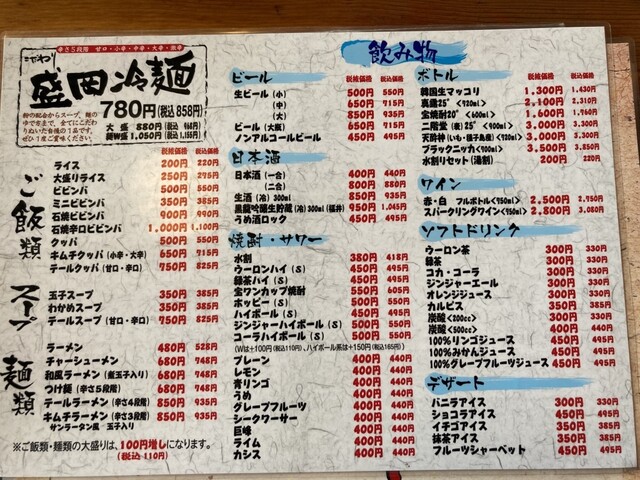 辛さ5段階 甘口・小辛・中辛・大辛・激辛
こだわり
盛岡冷麺
780円(税込858円)
粉の配合からスープ、麺の
ゆで方まで、全てにこだわ
りぬいた自慢の1品です。
ぜひ1度ご賞味ください。
大盛 880円(税込 968円)
1,050円(税込 1,155円)
ご飯類
税抜価格 税込価格
ライス 200円 220円
大盛りライス 250円 275円
ビビンバ 500円 550円
ミニビビンバ 350円 385円
石焼ビビンバ 900円 990円
石焼辛口ビビンバ 1,000円 1,100円
クッパ 500円 550円
キムチクッパ(小辛・大辛) 650円 715円
テールクッパ(甘口・辛口) 750円 825円
スープ
玉子スープ 350円 385円
わかめスープ 350円 385円
テールスープ(甘口・辛口) 750円 825円
麺類
ラーメン 480円 528円
チャーシューメン 680円 748円
和風ラーメン(煮玉子入り) 680円 748円
つけ麺(辛さ5段階) 680円 748円
テールラーメン(辛さ4段階) 850円 935円
キムチラーメン(辛さ3段階) 850円 935円
サンラータン風 玉子入り
※ご飯類・麺類の大盛りは、100円増しになります。
(税込110円)
飲み物
ビール 税抜価格 税込価格
生ビール(小) 500円 550円
(中) 650円 715円
(大) 850円 935円
ビール(大瓶) 650円 715円
ノンアルコールビール 450円 495円
日本酒
日本酒(一合) 400円 440円
(二合) 800円 880円
生酒(冷)300ml 850円 935円
黒龍吟醸生貯蔵(冷)300ml(福井) 950円 1,045円
うめ酒ロック 450円 495円
焼酎・サワー
水割 380円 418円
ウーロンハイ(S) 450円 495円
緑茶ハイ(S) 450円 495円
宝ワンカップ焼酎 550円 605円
ホッピー(S) 500円 550円
ハイボール(S) 450円 495円
ジンジャーハイボール(S) 450円 495円
コーラハイボール(S) 450円 495円
(Wは+100円(税込110円)、ハイボール系は+150円(税込165円))
プレーン 400円 440円
レモン 400円 440円
青リンゴ 400円 440円
うめ 400円 440円
グレープフルーツ 400円 440円
シークワーサー 400円 440円
巨峰 400円 440円
ライム 400円 440円
カシス 400円 440円
ボトル 税抜価格 税込価格
韓国生マッコリ 1,300円 1,430円
真露25°<920ml> 2,100円 2,310円
宝焼酎20°<600ml> 1,900円 2,090円
二階堂(麦)25° 3,000円 3,300円
天孫神(いも・種子島産)<900ml> 3,500円 3,850円
ブラックニッカ<900ml> 3,500円 3,850円
水割りセット(湯割) 200円 220円
ワイン
赤・白 フルボトル<950ml> 2,500円 2,750円
スパークリングワイン<750ml> 2,800円 3,080円
ソフトドリンク
ウーロン茶 300円 330円
緑茶 300円 330円
コカ・コーラ 300円 330円
ジンジャーエール 300円 330円
オレンジジュース 300円 330円
カルピス 350円 385円
炭酸<200cc> 300円 330円
炭酸<500cc> 400円 440円
100%リンゴジュース 450円 495円
100%みかんジュース 450円 495円
100%グレープフルーツジュース 450円 495円
デザート
バニラアイス 300円 330円
ショコラアイス 450円 495円
イチゴアイス 350円 385円
抹茶アイス 350円 385円
フルーツシャーベット 450円 495円